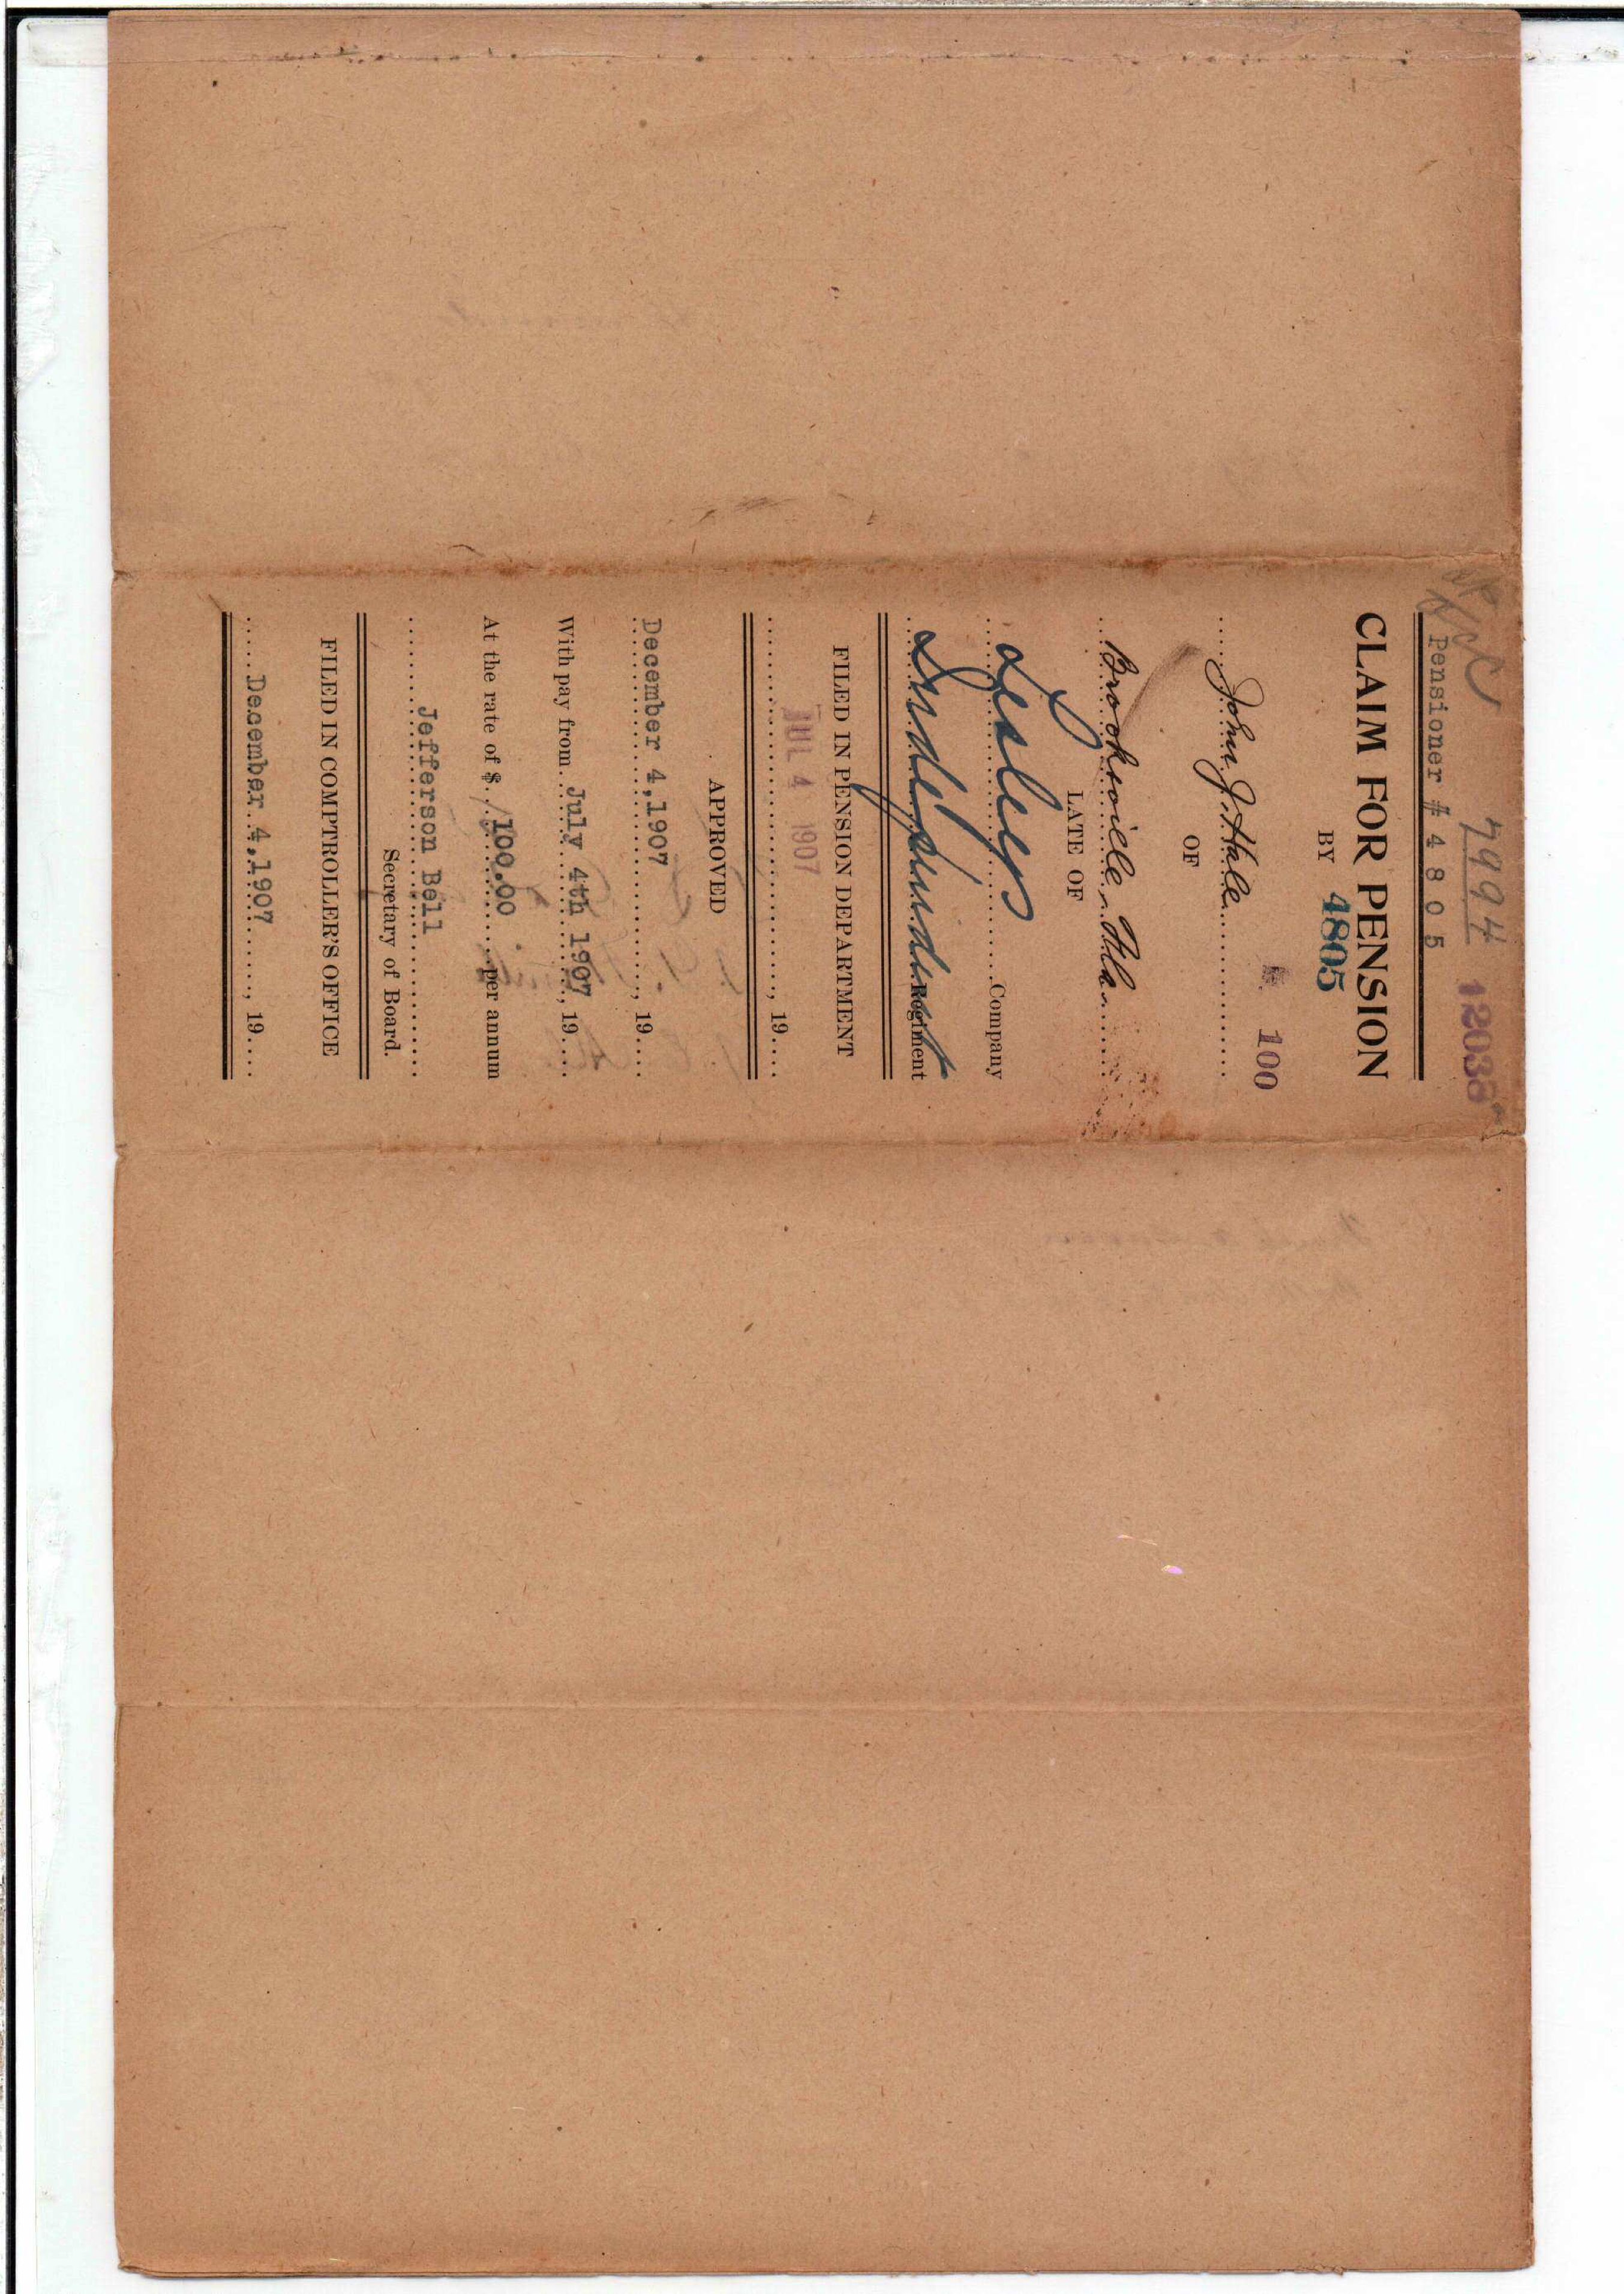 7994 12038
Pensioner # 4805
CLAIM FOR PENSION
BY 4805
100
John J. Hale
OF
Brooksville, Fla.
LATE OF
Lesleys Company
Independent Regiment
FILED IN PENSION DEPARTMENT
JUL 4 1907
........, 19....
APPROVED
December 4, 1907, 19....
With pay from July 4th 1907, 19....
At the rate of $ 100.00 per annum
Jefferson Bell
Secretary of Board.
FILED IN COMPTROLLER'S OFFICE
December 4, 1907, 19....